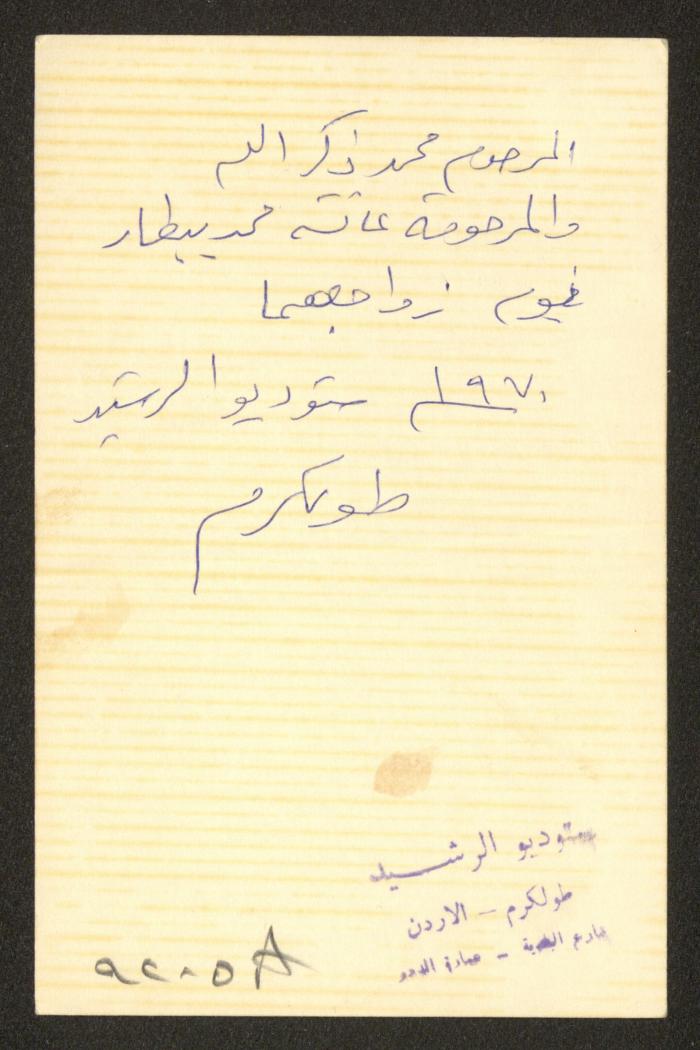 المرحوم محمد ذكر الله
والمرحومة عائشة محمد بيطار
في يوم زواجهما
١٩٧٠ ستوديو الرشيد
طولكرم
ستوديو الرشيد
طولكرم - الاردن
شارع البلدية - عمارة